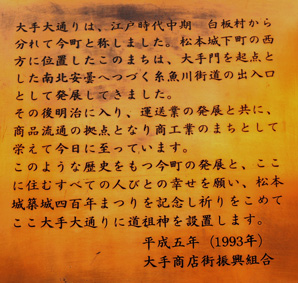 大手大通りは、江戸時代中期　白板村から
分れて今町と称しました。松本城下町の西
方に位置したこのまちは、大手門を起点と
した南北安曇へつづく糸魚川街道の出入口
として発展してきました。
その後明治に入り、運送業の発展と共に、
商品流通の拠点となり商工業のまちとして
栄えて今日に至っています。
このような歴史をもつ今町の発展と、ここ
に住むすべての人びとの幸せを願い、松本
城築城四百年まつりを記念し祈りをこめて
ここ大手大通りに道祖神を設置します。
平成五年（1993年）
大手商店街振興組合